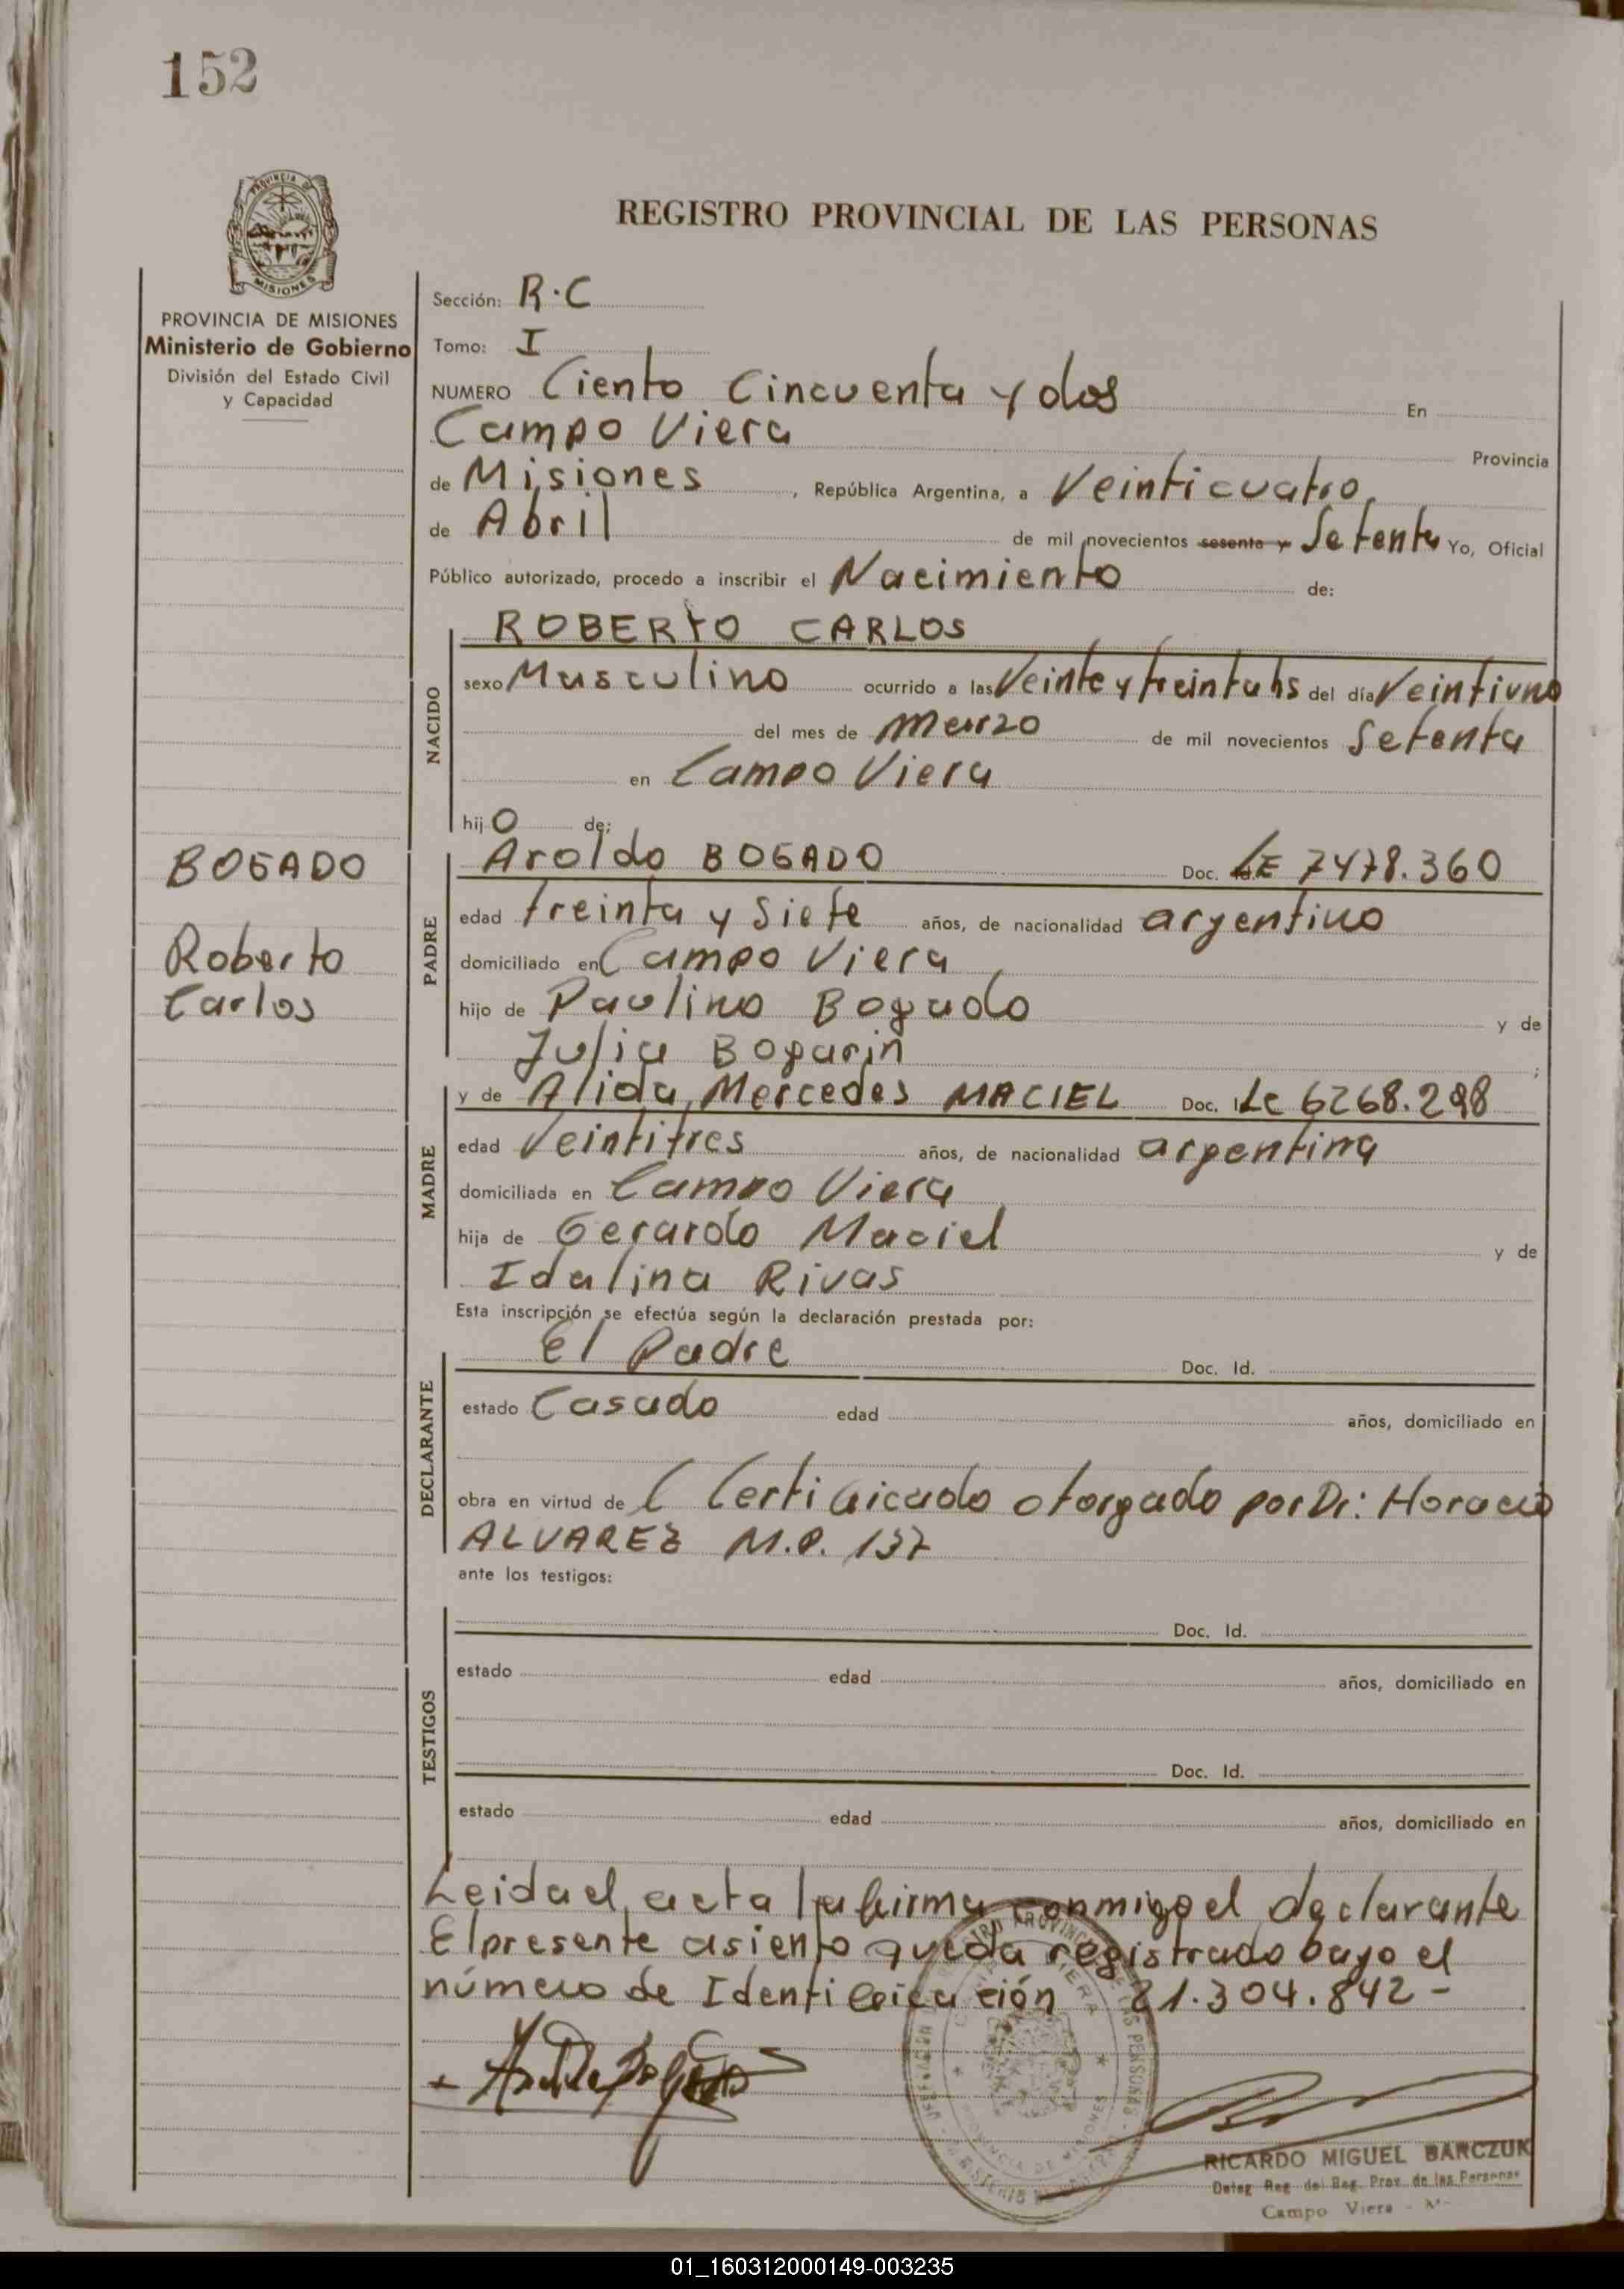 152
PROVINCIA DE
MISIONES
REGISTRO PROVINCIAL DE LAS PERSONAS
PROVINCIA DE MISIONES
Ministerio de Gobierno
División del Estado Civil
y Capacidad
Sección: R.C
Tomo: I
NUMERO Ciento Cincuenta y dos En
Campo Viera Provincia
de Misiones, República Argentina, a Veinticuatro
de Abril de mil novecientos sesenta y Setenta Yo, Oficial
Público autorizado, procedo a inscribir el Nacimiento de:
NACIDO
ROBERTO CARLOS
sexo Masculino ocurrido a las Veinte y treinta hs del día Veintiuno
del mes de Marzo de mil novecientos Setenta
en Campo Viera
hijo de:
BOGADO
Roberto
Carlos
PADRE
Aroldo BOGADO Doc. LE 7478.360
edad treinta y Siete años, de nacionalidad argentino
domiciliado en Campo Viera
hijo de Paulino Bogado y de
Julia Bogarin ;
MADRE
y de Alida Mercedes MACIEL Doc. Lc 6268.298
edad Veintitres años, de nacionalidad argentina
domiciliada en Campo Viera
hija de Gerardo Maciel y de
Idalina Rivas
Esta inscripción se efectúa según la declaración prestada por:
DECLARANTE
El Padre Doc. Id.
estado Casado edad años, domiciliado en
obra en virtud de Certificado otorgado por Dr: Horacio
ALVAREZ M.P. 137
ante los testigos:
TESTIGOS
Doc. Id.
estado edad años, domiciliado en
Doc. Id.
estado edad años, domiciliado en
Leida el acta la firma conmigo el declarante
El presente asiento queda registrado bajo el
número de Identificación 21.304.842-
RICARDO MIGUEL BARCZUK
Deleg. Reg. del Reg. Prov. de las Personas
Campo Viera
01_160312000149-003235